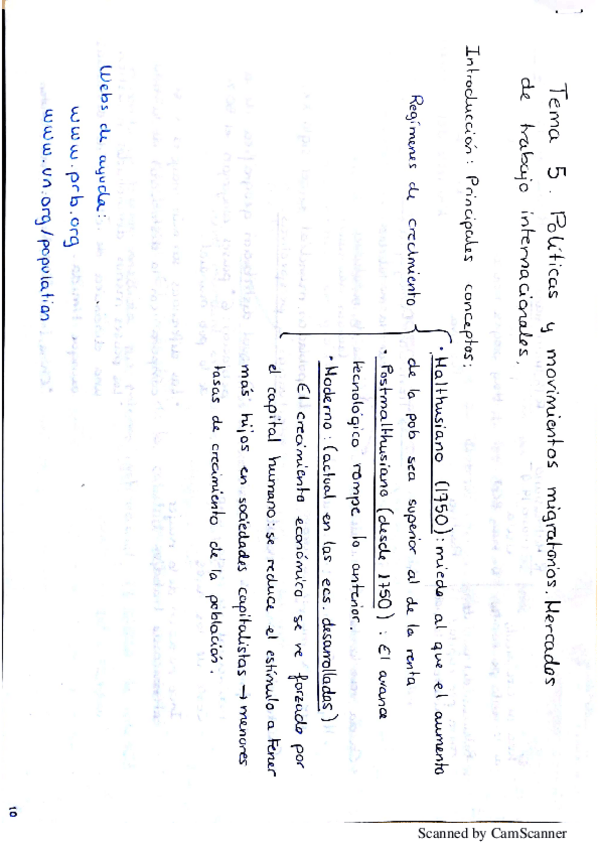 Tema 5. Políticas y movimientos migratorios. Mercados
de trabajo internacionales.
Introducción: Principales conceptos:
Regímenes de crecimiento
· Malthusiano (1750): miedo al que el aumento
de la pob sea superior al de la renta
· Postmalthusiano (desde 1750): El avance
tecnológico rompe lo anterior.
· Moderno: (actual en las ecs. desarrolladas)
El crecimiento económico se ve forzado por
el capital humano: se reduce el estímulo a tener
más hijos en sociedades capitalistas → menores
tasas de crecimiento de la población.
Webs de ayuda:
www.prb.org
www.un.org/population
10
Scanned by CamScanner